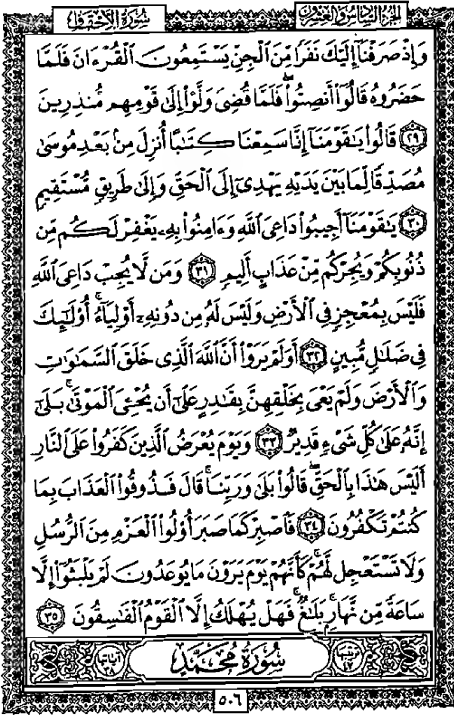 الجزء السادس والعشرون
سورة الأحقاف
وَإِذْ صَرَفْنَآ إِلَيْكَ نَفَرًا مِّنَ ٱلْجِنِّ يَسْتَمِعُونَ ٱلْقُرْءَانَ فَلَمَّا
حَضَرُوهُ قَالُوٓا۟ أَنصِتُوا۟ ۖ فَلَمَّا قُضِىَ وَلَّوْا۟ إِلَىٰ قَوْمِهِم مُّنذِرِينَ
٢٩ قَالُوا۟ يَـٰقَوْمَنَآ إِنَّا سَمِعْنَا كِتَـٰبًا أُنزِلَ مِنۢ بَعْدِ مُوسَىٰ
مُصَدِّقًا لِّمَا بَيْنَ يَدَيْهِ يَهْدِىٓ إِلَى ٱلْحَقِّ وَإِلَىٰ طَرِيقٍ مُّسْتَقِيمٍ
٣٠ يَـٰقَوْمَنَآ أَجِيبُوا۟ دَاعِىَ ٱللَّهِ وَءَامِنُوا۟ بِهِۦ يَغْفِرْ لَكُم مِّن
ذُنُوبِكُمْ وَيُجِرْكُم مِّنْ عَذَابٍ أَلِيمٍ ٣١ وَمَن لَّا يُجِبْ دَاعِىَ ٱللَّهِ
فَلَيْسَ بِمُعْجِزٍ فِى ٱلْأَرْضِ وَلَيْسَ لَهُۥ مِن دُونِهِۦٓ أَوْلِيَآءُ ۚ أُو۟لَـٰٓئِكَ
فِى ضَلَـٰلٍ مُّبِينٍ ٣٢ أَوَلَمْ يَرَوْا۟ أَنَّ ٱللَّهَ ٱلَّذِى خَلَقَ ٱلسَّمَـٰوَٰتِ
وَٱلْأَرْضَ وَلَمْ يَعْىَ بِخَلْقِهِنَّ بِقَـٰدِرٍ عَلَىٰٓ أَن يُحْـِۧىَ ٱلْمَوْتَىٰ ۚ بَلَىٰٓ
إِنَّهُۥ عَلَىٰ كُلِّ شَىْءٍ قَدِيرٌ ٣٣ وَيَوْمَ يُعْرَضُ ٱلَّذِينَ كَفَرُوا۟ عَلَى ٱلنَّارِ
أَلَيْسَ هَـٰذَا بِٱلْحَقِّ ۖ قَالُوا۟ بَلَىٰ وَرَبِّنَا ۚ قَالَ فَذُوقُوا۟ ٱلْعَذَابَ بِمَا
كُنتُمْ تَكْفُرُونَ ٣٤ فَٱصْبِرْ كَمَا صَبَرَ أُو۟لُوا۟ ٱلْعَزْمِ مِنَ ٱلرُّسُلِ
وَلَا تَسْتَعْجِل لَّهُمْ ۚ كَأَنَّهُمْ يَوْمَ يَرَوْنَ مَا يُوعَدُونَ لَمْ يَلْبَثُوٓا۟ إِلَّا
سَاعَةً مِّن نَّهَارٍۭ ۚ بَلَـٰغٌ ۚ فَهَلْ يُهْلَكُ إِلَّا ٱلْقَوْمُ ٱلْفَـٰسِقُونَ ٣٥
ترتيبها ٤٧
سُورَةُ مُحَمَّدٍ
آياتها ٣٨
٥٠٦